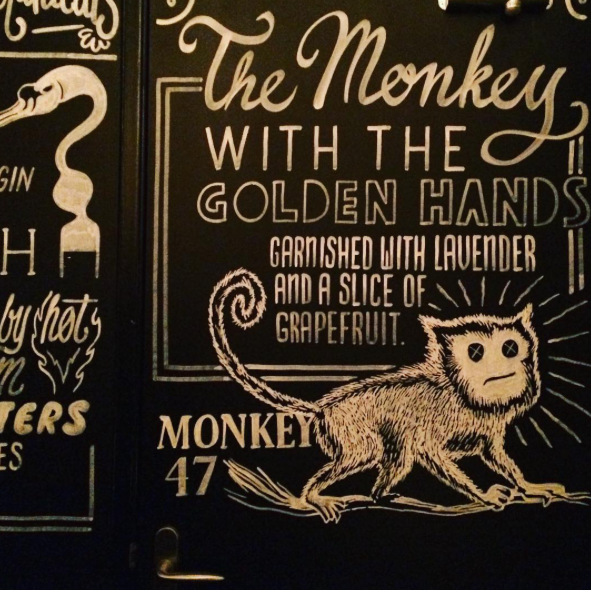 The Monkey
WITH THE
GOLDEN HANDS
GARNISHED WITH LAVENDER
AND A SLICE OF
GRAPEFRUIT.
MONKEY
47
GIN
H
by hot
TERS
ES